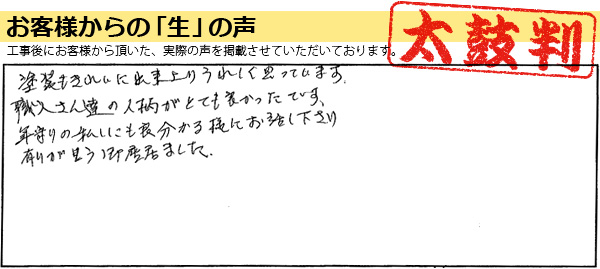 お客様からの「生」の声
太鼓判
工事後にお客様から頂いた、実際の声を掲載させていただいております。
塗装もきれいに出来上りうれしく思っています。
職人さん達の人柄がとても良かったです、
年寄りの私しにも良分かる様にお話し下さり
有りが とう御座居ました.